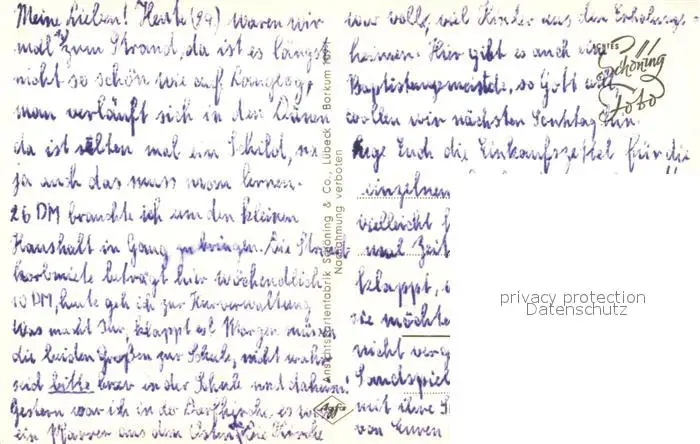 Meine Lieben! Heute (24) waren wir
mal zum Strand, da ist es längst
nicht so schön wie auf Langeoog,
man verläuft sich in den Dünen
da ist selten mal ein Schild, na
ja auch das muss man lernen.
26 DM brauchte ich um den kleinen
Haushalt in Gang zu bringen. Die
korbmiete beträgt hier wöchendlich
10 DM, heute geh ich zur Kurverwaltung
Was macht Ihr, klappt es! Morgen müssen
die beiden Großen zur Schule, nicht wahr
seid bitte brav in der Schule und daheim!
Gestern war ich in der Dorfkirche, es
ein Pfarrer aus dem Osten Die Kirche
war voll, viel Kinder aus den Erholungs-
heimen. Hier gibt es auch eine
Baptistengemeinde, so Gott will
wollen wir nächsten Sonntag hin.
Lege Euch die Einkaufszettel für die
einzelnen
vielleicht
und Zeit
klappt,
sie möchte
nicht
Sandspiel
mit ihre
von Euren
Ansichtskartenfabrik Schöning & Co., Lübeck Borkum
Nachahmung verboten
Agfa
ECHTES
Schöning
Foto
privacy protection
Datenschutz